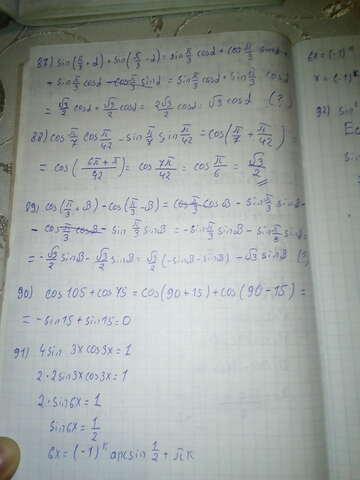 87) sin(π/3 + α) + sin(π/3 - α) = sin π/3 cosα + cos π/3 sinα +
+ sin π/3 cosα - cos π/3 sinα = sin π/3 cosα + sin π/3 cosα
= √3/2 cosα + √3/2 cosα = 2√3/2 cosα = √3 cosα (?)
88) cos π/7 cos π/42 - sin π/7 sin π/42 = cos(π/7 + π/42)
= cos(6π+π/42) = cos 7π/42 = cos π/6 = √3/2
89) cos(π/3 + B) - cos(π/3 - B) = cos π/3 cosB - sin π/3 sinB -
- cos π/3 cosB - sin π/3 sinB = - sin π/3 sinB - sin π/3 sinB =
= - √3/2 sinB - √3/2 sinB = √3/2 (- sinB - sinB) - √3 sinB (?)
90) cos105 + cos75 = cos(90+15) + cos(90-15) =
= - sin15 + sin15 = 0
91) 4 sin 3x cos3x = 1
2·2 sin3x cos3x = 1
2·sin6x = 1
sin6x = 1/2
6x = (-1)^k arcsin 1/2 + πk
6x = (-1)^k
x = (-1)^k
92) sin